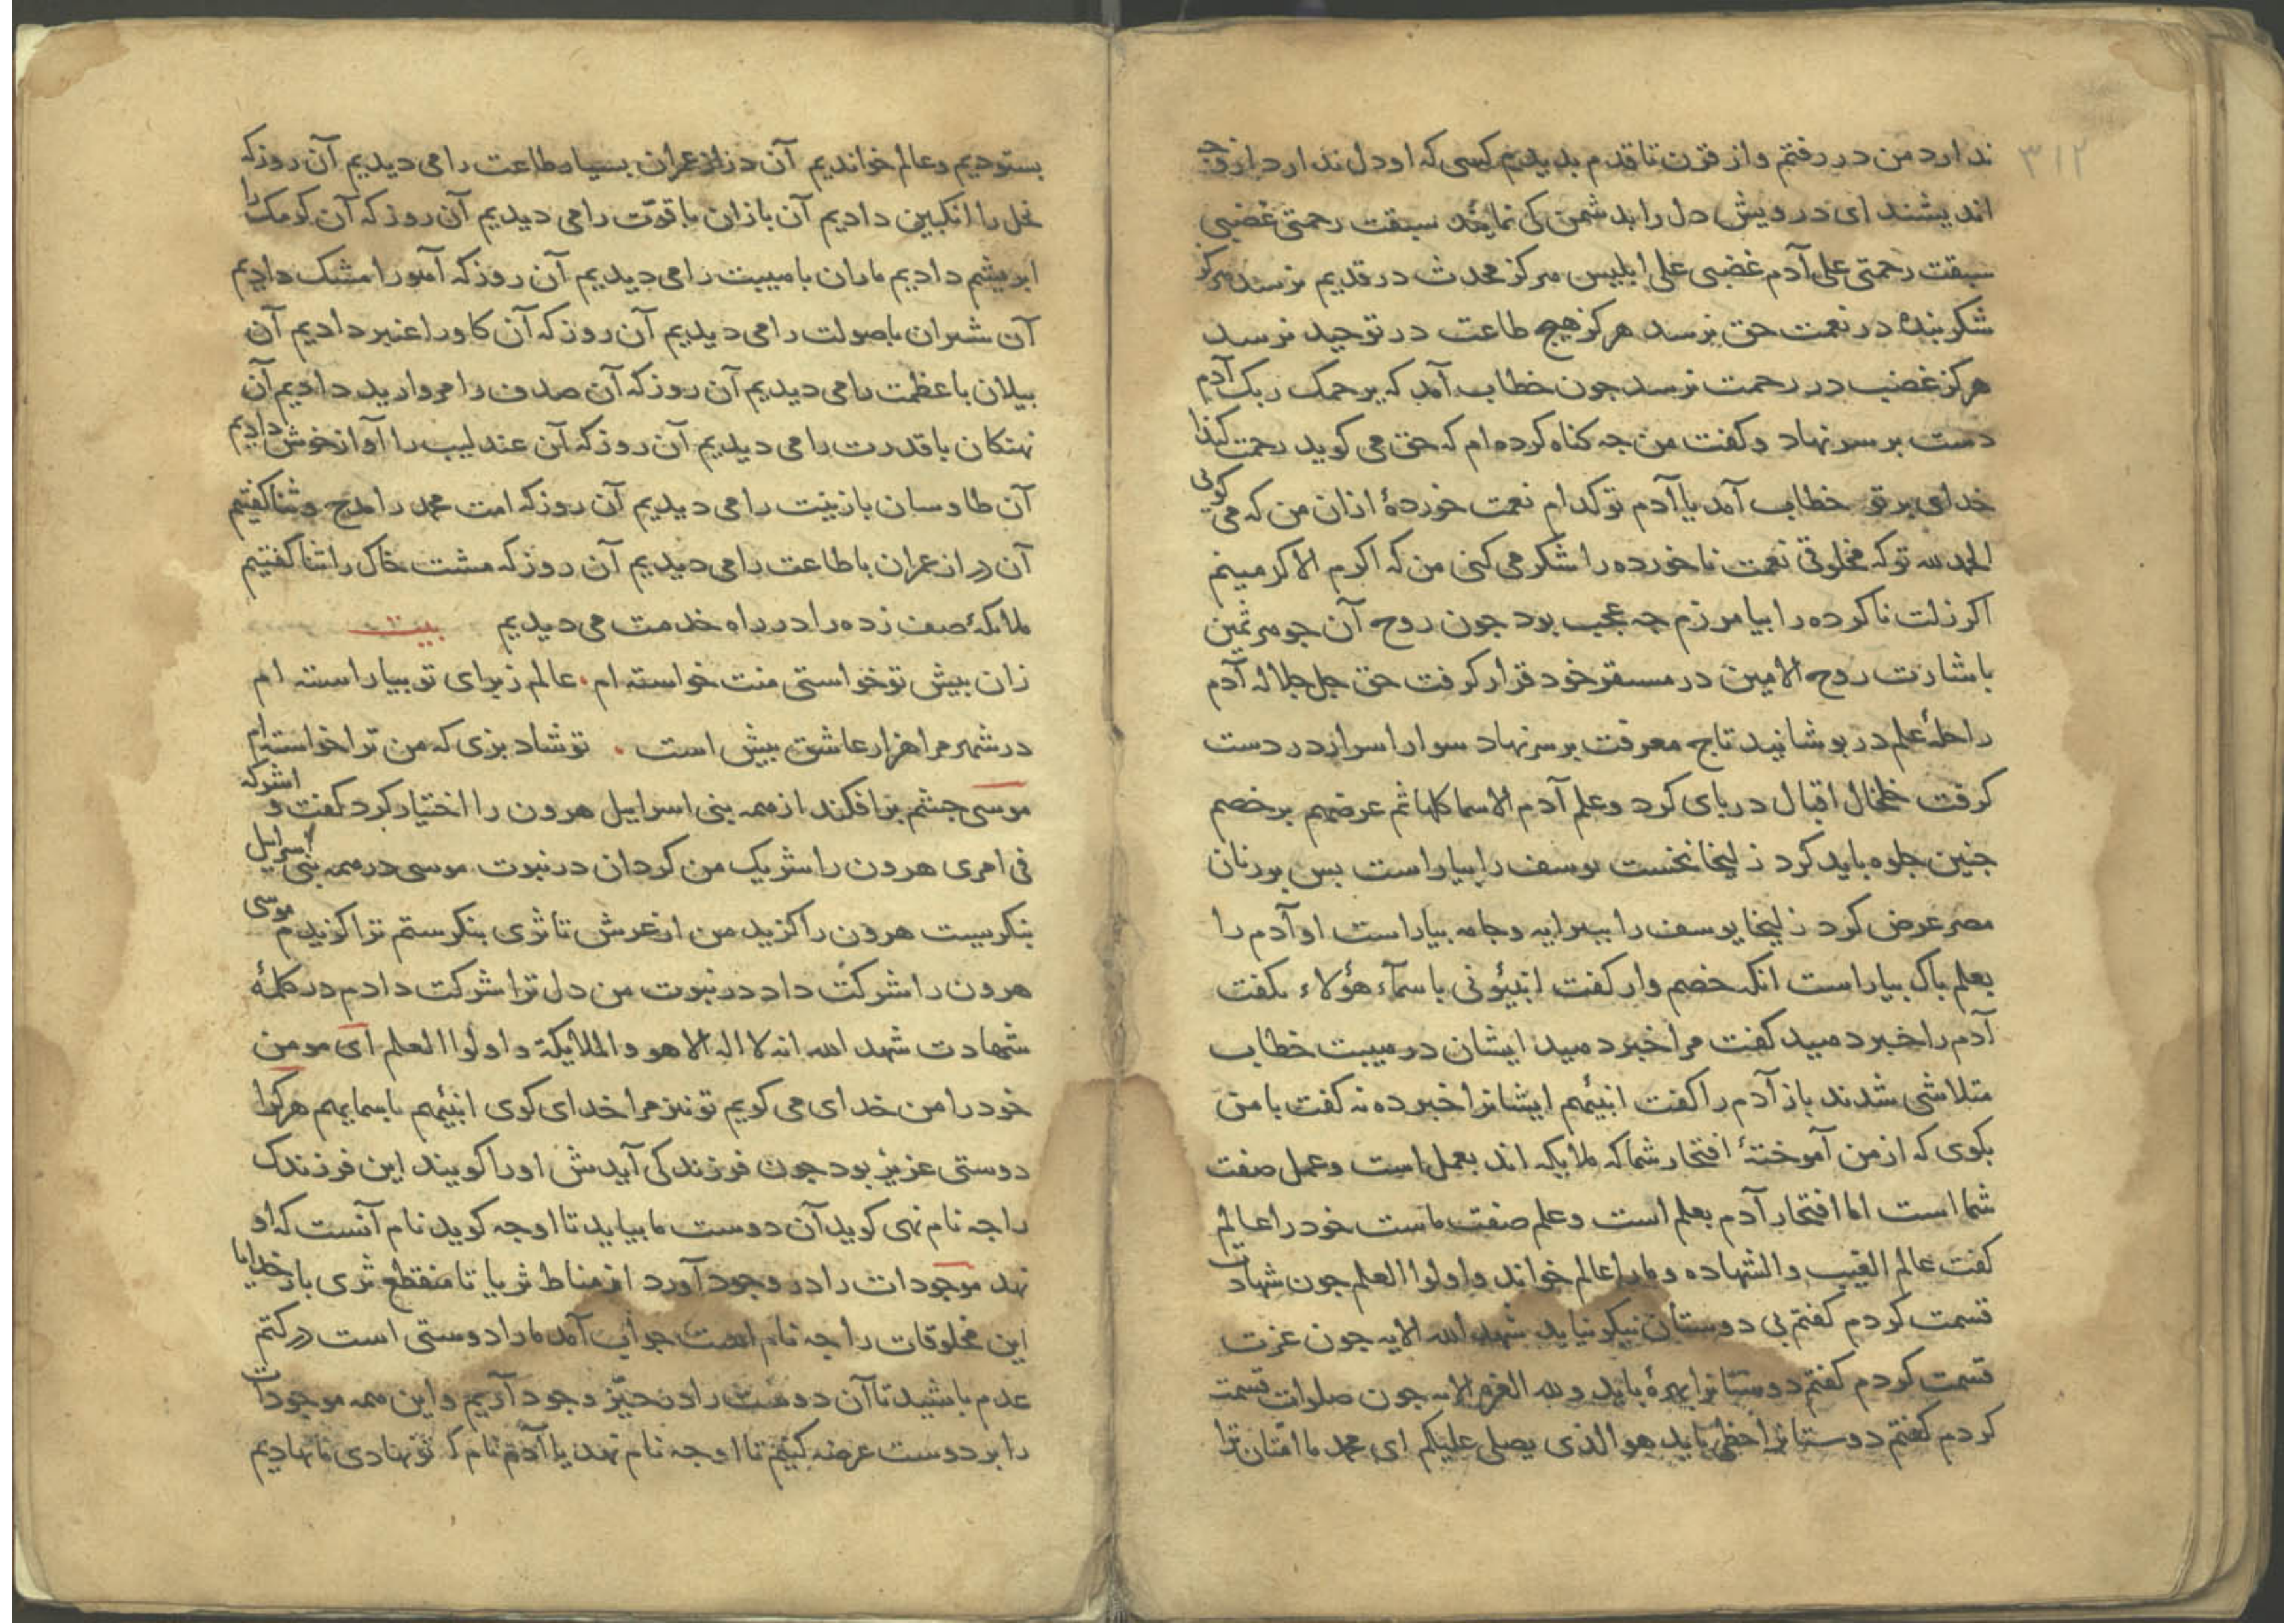 ۳۱۲
ندارد من در رفتم و از قرن تا قدم بدیدم کسی که او دل ندارد از وی چه
اندیشند ای درویش دل را بدشمن کی نمایند سبقت رحمتی غضبی
سبقت رحمتی علی آدم غضبی علی ابلیس هرکز محدث در قدیم نرسد هرکز
شکر بنده در نعمت حق نرسد هرکز هیچ طاعت در توحید نرسد
هرکز غضب در رحمت نرسد جون خطاب آمد که یرحمک ربک آدم
دست بر سر نهاد و کفت من جه کناه کرده ام که حق می کوید رحمت کناد
خدای بر تو خطاب آمد یا آدم تو کدام نعمت خوردهٔ ازان من که می کوئی
الحمد لله تو که مخلوقی نعمت ناخورده را شکر می کنی من که اکرم الاکرمینم
اکر زلت ناکرده را بیامرزم جه عجب بود جون روح آن جوهر ثمین
باشارت روح الامین در مستقر خود قرار کرفت حق جل جلاله آدم
را حلهٔ علم در بوشانید تاج معرفت بر سر نهاد سوار اسرار در دست
کرفت خلخال اقبال در بای کرد و علم آدم الاسما کلها ثم عرضهم بر خصم
جنین جلوه باید کرد زلیخا نخست یوسف را بیاراست بس بر زنان
مصر عرض کرد زلیخا یوسف را ببیرایه و جامه بیاراست او آدم را
بعلم باک بیاراست انکه خصم وار کفت انبئونی باسمآء هؤلاء نکفت
آدم را خبر دهید کفت مرا خبر دهید ایشان در هیبت خطاب
متلاشی شدند باز آدم را کفت انبئهم ایشانرا خبر ده نه کفت با من
بکوی که از من آموختهٔ افتخار شما که ملایکه اند بعمل است و عمل صفت
شما است اما افتخار آدم بعلم است و علم صفت ماست خود را عالم
کفت عالم الغیب والشهاده و مارا عالم خواند و اولوا العلم جون شهادت
قسمت کردم کفتم بی دوستان نیکو نیاید شهد الله الایه جون عزت
قسمت کردم کفتم دوستانرا بهرهٔ باید ولله العزة الایه جون صلوات قسمت
کردم کفتم دوستانرا حظی باید هو الذی یصلی علیکم ای محمد ما امتان ترا
بستودیم و عالم خواندیم آن دراز عمران بسیار طاعت را می دیدیم آن روز که
نحل را انکبین دادیم آن بازان با قوت را می دیدیم آن روز که آن کرمک را
ابریشم دادیم ماران با هیبت را می دیدیم آن روز که آهو را مشک دادیم
آن شیران با صولت را می دیدیم آن روز که آن کاو را عنبر دادیم آن
بیلان با عظمت را می دیدیم آن روز که آن صدف را مروارید دادیم آن
نهنکان با قدرت را می دیدیم آن روز که آن عندلیب را آواز خوش دادیم
آن طاوسان با زینت را می دیدیم آن روز که امت محمد را مدح و ثنا کفتیم
آن دراز عمران با طاعت را می دیدیم آن روز که مشت خاک را ثنا کفتیم
ملایکهٔ صف زده را در راه خدمت می دیدیم بیت
زان بیش تو خواستی منت خواسته ام . عالم ز برای تو بیاراسته ام
در شهر مرا هزار عاشق بیش است . تو شاد بزی که من ترا خواسته ام
موسی جشم بر افکند از همه بنی اسرایل هرون را اختیار کرد کفت و اشرکه
فی امری هرون را شریک من کردان در نبوت موسی در همه بنی اسرایل
بنکریست هرون را کزید من از عرش تا ثری بنکرستم ترا کزیدم موسی
هرون را شرکت داد در نبوت من دل ترا شرکت دادم در کلمهٔ
شهادت شهد الله انه لا اله الا هو والملایکة و اولوا العلم ای مومن
خود را من خدای می کویم تو نیز مرا خدای کوی انبئهم باسمایهم هر کرا
دوستی عزیز بود جون فرزند کی آیدش او را کویند این فرزندک
را جه نام نهی کوید آن دوست ما بیاید تا او جه کوید نام آنست که او
نهد موجودات را در وجود آورد از مناط ثریا تا منقطع ثری بار خدایا
این مخلوقات را جه نام است جواب آمد ما را دوستی است در کتم
عدم باشید تا آن دوست را در حیّز وجود آریم و این همه موجودات
را بر دوست عرضه کنیم تا او جه نام نهد یا آدم نام که تو نهادی ما نهادیم